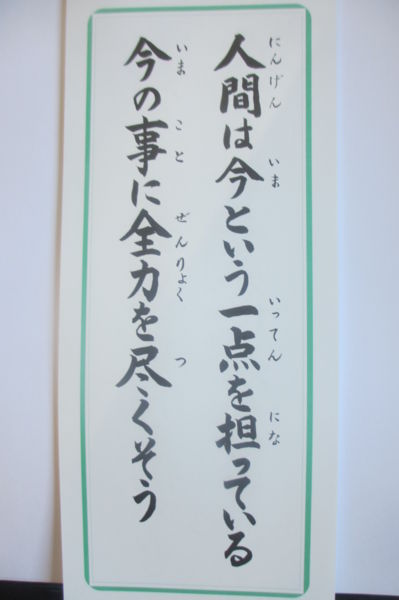 人間は今という一点を担っている
にんげん いま いってん にな
今の事に全力を尽くそう
いま こと ぜんりょく つ